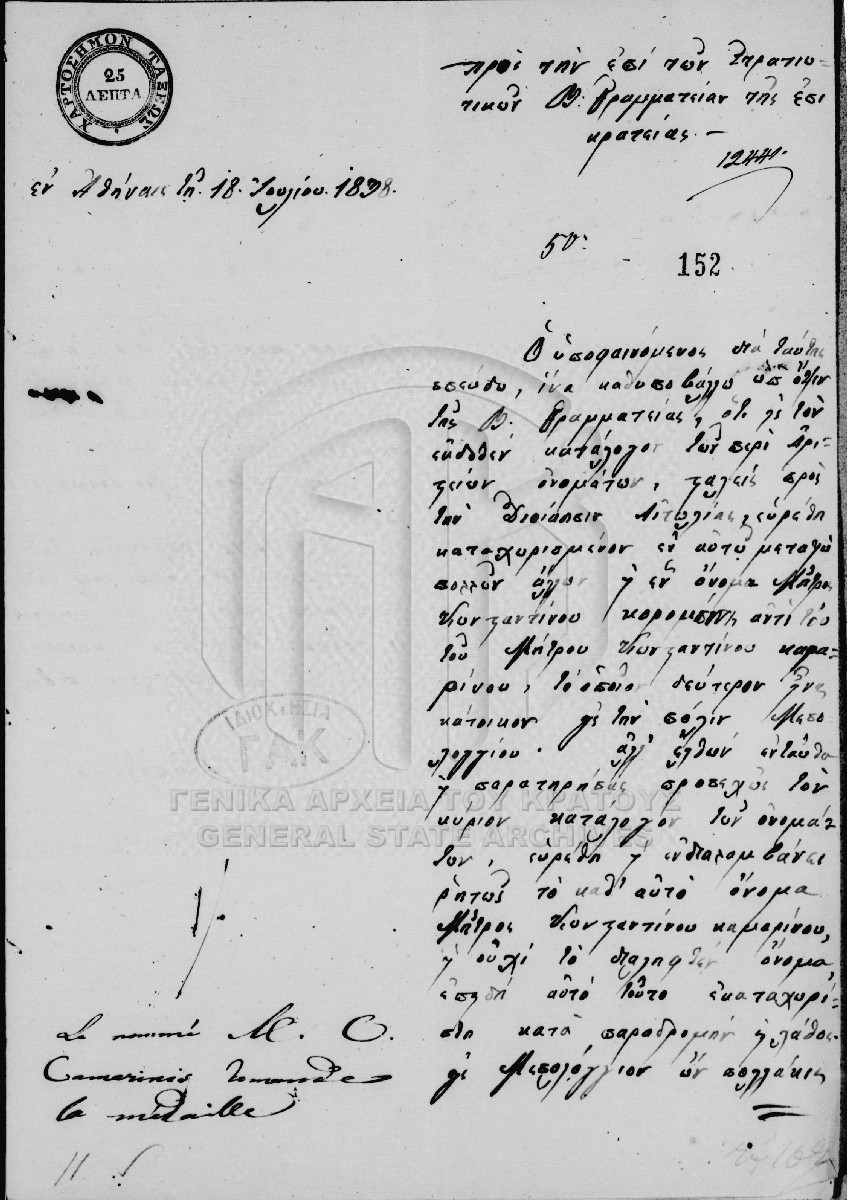 ΧΑΡΤΟΣΗΜΟΝ ΤΑΞΕΩΣ
25
ΛΕΠΤΑ
πρὸς τὴν ἐπὶ τῶν Στρατιω-
τικῶν Β. Γραμματείαν τῆς ἐπι
κρατείας. –
12441.
ἐν Ἀθήναις τῇ 18 Ἰουλίου 1838.
50
152
Ὁ ὑποφαινόμενος διὰ ταύτης
σπεύδω, ἵνα καθυποβάλω ὑπ' ὄψιν
τῆς Β. Γραμματείας, ὅτι εἰς τὸν
ἐκδοθέν κατάλογον τῶν περὶ Ἀρι-
στείων ὀνομάτων, σταλείς πρὸς
τὴν Διοίκησιν Αἰτωλίας, εὑρέθη
καταχωρισμένον ἐν αὐτῷ μεταξὺ
πολλῶν ἄλλων καὶ ἓν ὄνομα Μῆτρος
Κωνσταντίνου ἀντὶ τοῦ
τοῦ Μήτρου Κωνσταντίνου καμα-
ρίνου, τὸ ὁποῖον δεύτερον εἶναι
κάτοικον εἰς τὴν πόλιν Μεσο-
λογγίου. ἀλλ' ἐλθὼν ἐνταῦθα
καὶ παρατηρήσας προσεχῶς τὸν
κύριον κατάλογον τῶν ὀνομά-
των, εὑρέθη καὶ ἐνδιαλαμβάνει
ῥητῶς τὸ καθ' αὐτὸ ὄνομα
Μῆτρος Κωνσταντίνου καμαρίνου,
καὶ οὐχὶ τὸ διαληφθὲν ὄνομα,
ἐπειδὴ αὐτὸ τοῦτο ἐκαταχωρί-
σθη κατὰ παραδρομὴν ἢ λάθος
εἰς Μεσολόγγιον ὢν πολλάκις
Le nommé M. C.
Camarinis demande
la médaille
11
ΙΔΙΟΚΤΗΣΙΑ
ΓΑΚ
ΓΕΝΙΚΑ ΑΡΧΕΙΑ ΤΟΥ ΚΡΑΤΟΥΣ
GENERAL STATE ARCHIVES